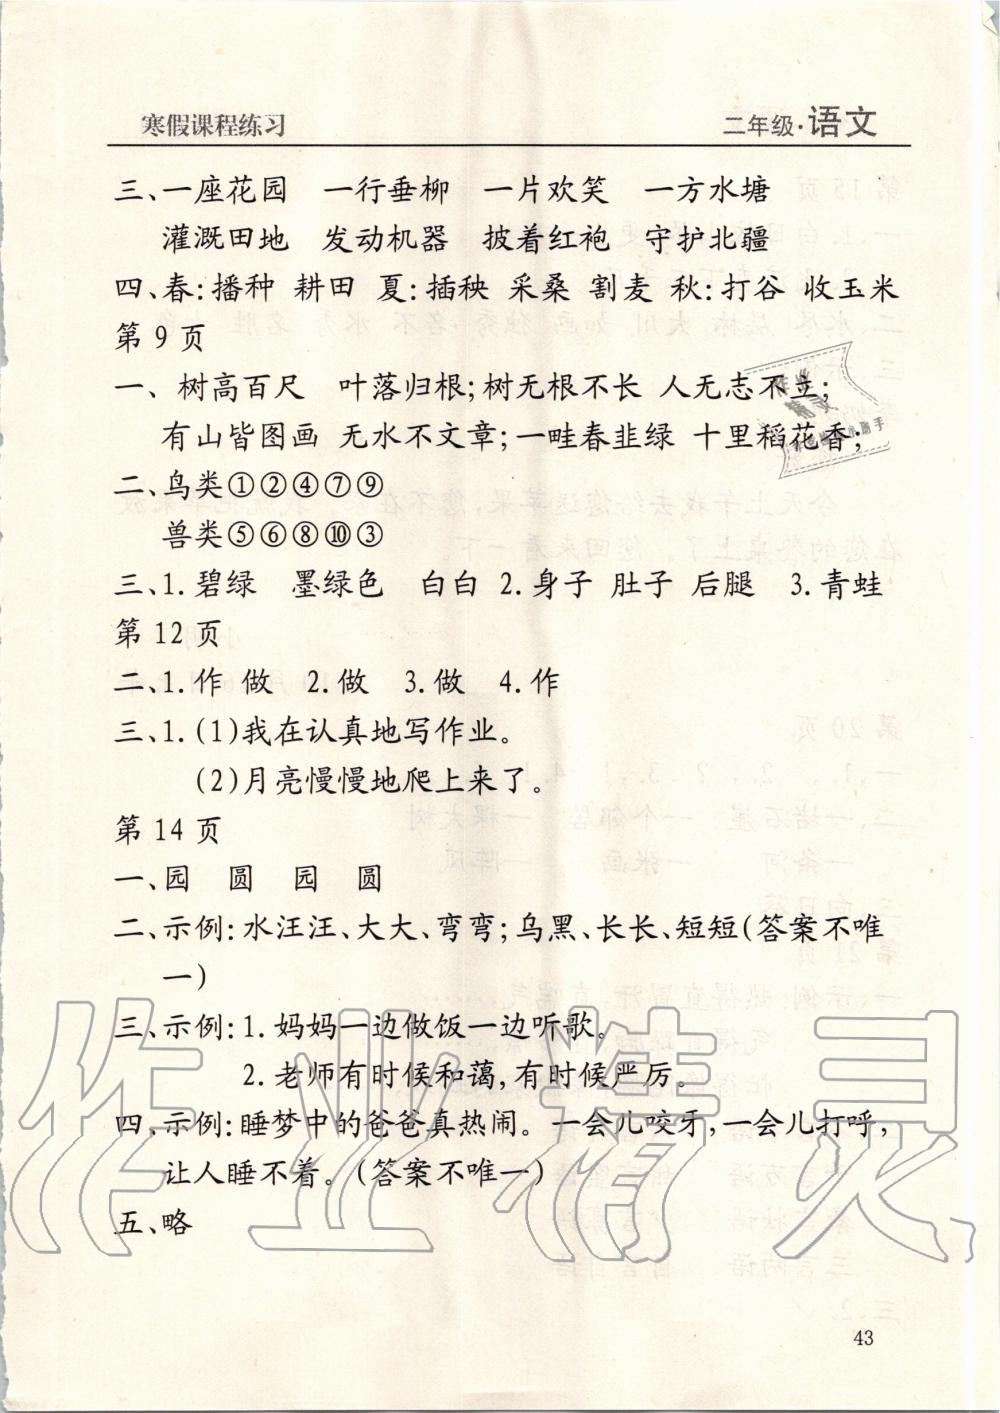 寒假课程练习
二年级·语文
三、一座花园 一行垂柳 一片欢笑 一方水塘
灌溉田地 发动机器 披着红袍 守护北疆
四、春:播种 耕田 夏:插秧 采桑 割麦 秋:打谷 收玉米
第 9 页
一、树高百尺 叶落归根;树无根不长 人无志不立;
有山皆图画 无水不文章;一畦春韭绿 十里稻花香;
二、鸟类①②④⑦⑨
兽类⑤⑥⑧⑩③
三、1.碧绿 墨绿色 白白 2.身子 肚子 后腿 3.青蛙
第 12 页
二、1.作 做 2.做 3.做 4.作
三、1.(1)我在认真地写作业。
(2)月亮慢慢地爬上来了。
第 14 页
一、园 圆 园 圆
二、示例:水汪汪、大大、弯弯;乌黑、长长、短短(答案不唯
一)
三、示例:1.妈妈一边做饭一边听歌。
2.老师有时候和蔼,有时候严厉。
四、示例:睡梦中的爸爸真热闹。一会儿咬牙,一会儿打呼,
让人睡不着。(答案不唯一)
五、略
作业精灵
43